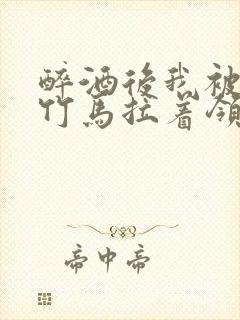 醉酒後我被
竹馬拉着領
帝中帝